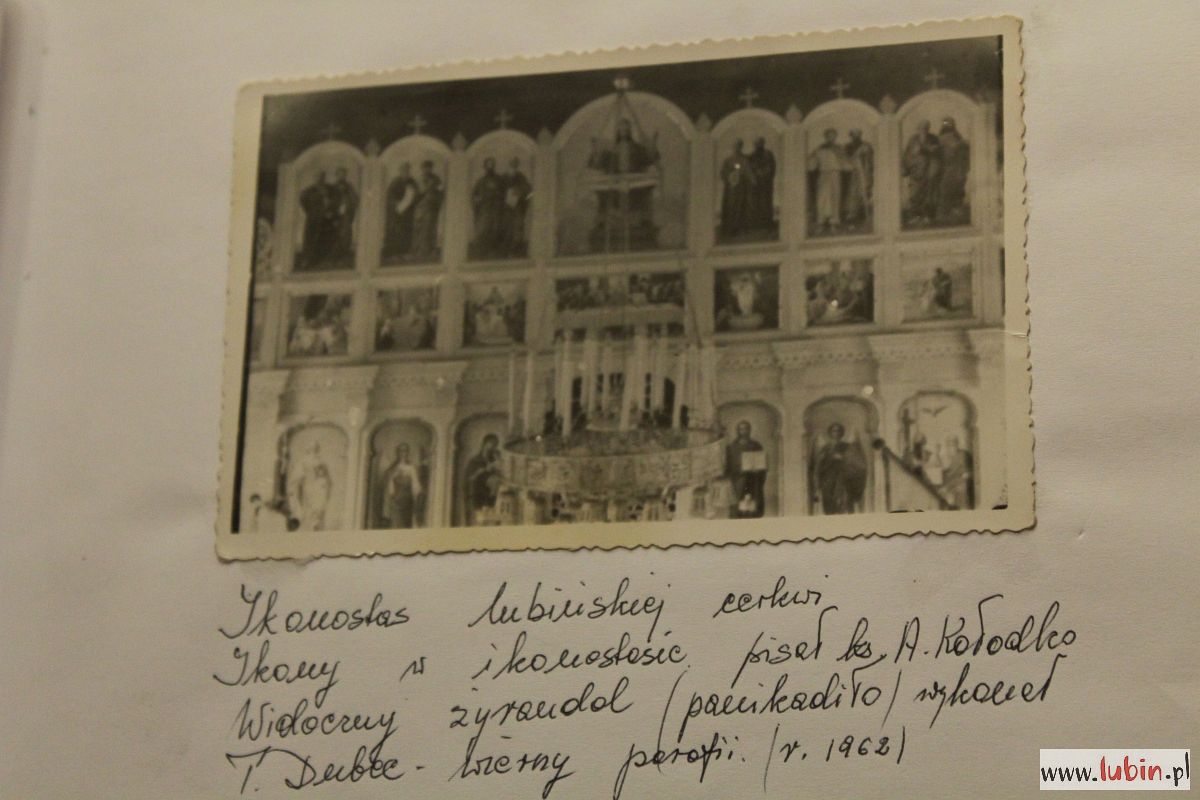 Ikonostas lubińskiej cerkwi
Ikony w ikonostasie pisał ks. A. Kołodko
Widoczny żyrandol (panikadiło) wykonał
T. Dubec - wierny parafii. (r. 1962)
www.lubin.pl